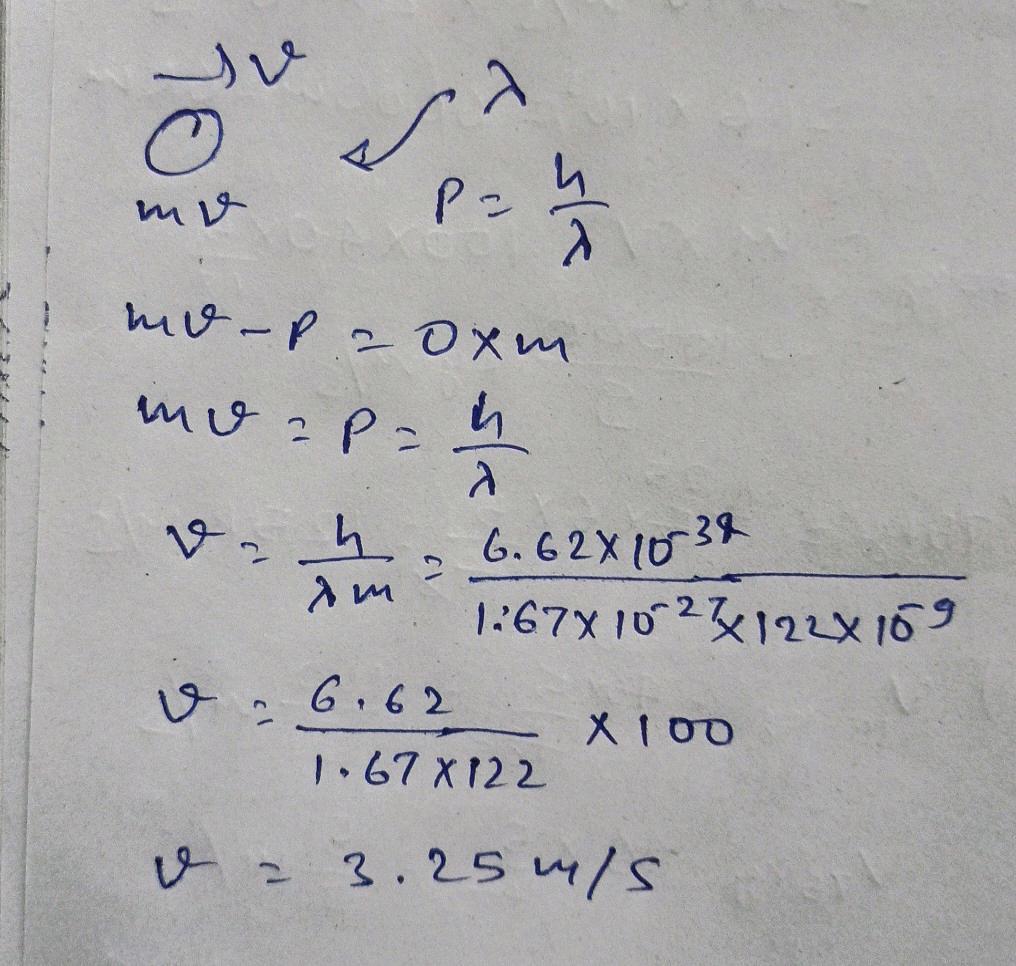 → v
λ
mv
P = h/λ
mv - P = 0 × m
mv = P = h/λ
v = h/λm = 6.62 × 10^-34 / 1.67 × 10^-27 × 122 × 10^-9
v = 6.62 / 1.67 × 122 × 100
v = 3.25 m/s